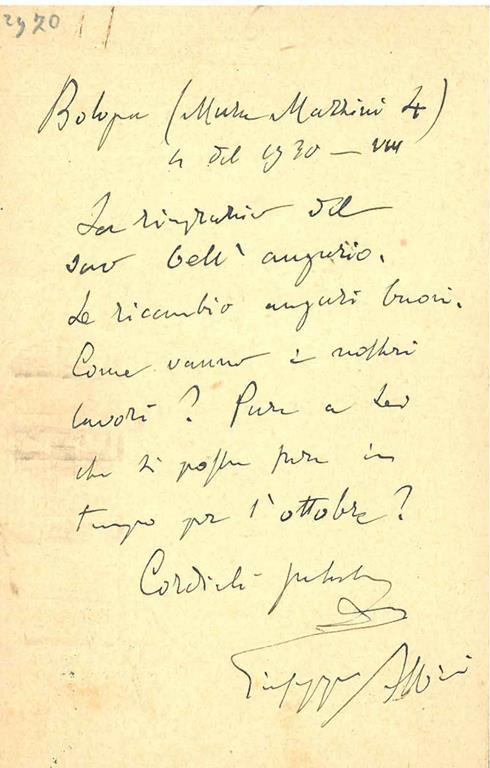 2970
Bologna (Mura Mazzini 4)
4 del 1930 – VIII
La ringrazio del
suo bell'augurio.
Le ricambio auguri buoni.
Come vanno i nostri
lavori? Pare a Lei
che si possa fare in
tempo per l'ottobre?
Cordiali saluti
Giuseppe Albini